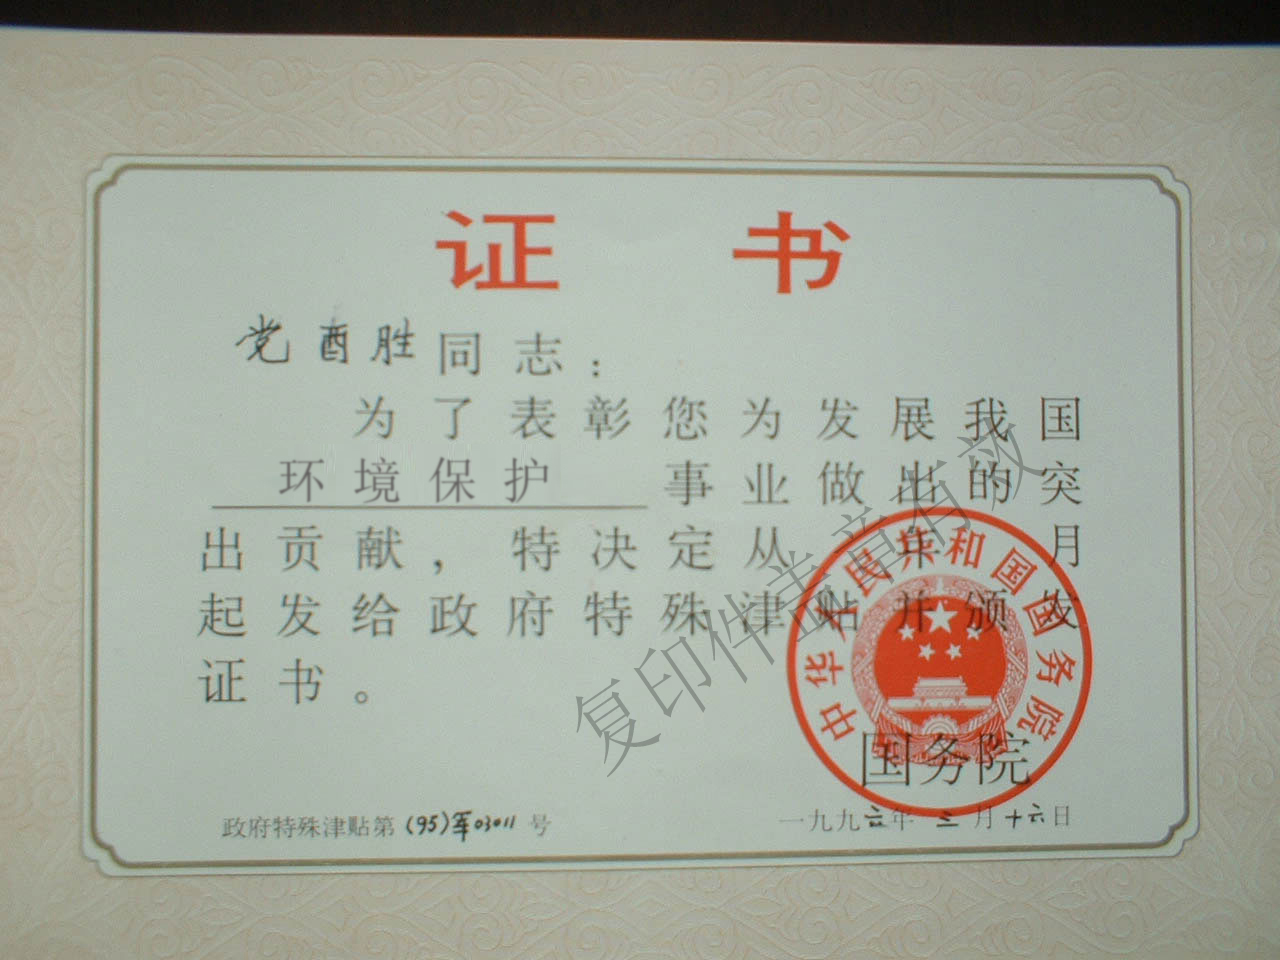 证书
党酉胜同志：
为了表彰您为发展我国
环境保护 事业做出的突
出贡献，特决定从 年 月
起发给政府特殊津贴并颁发
证书。
复印件盖章有效
中华人民共和国国务院
国务院
政府特殊津贴第(95)军03011号
一九九六年三月十六日